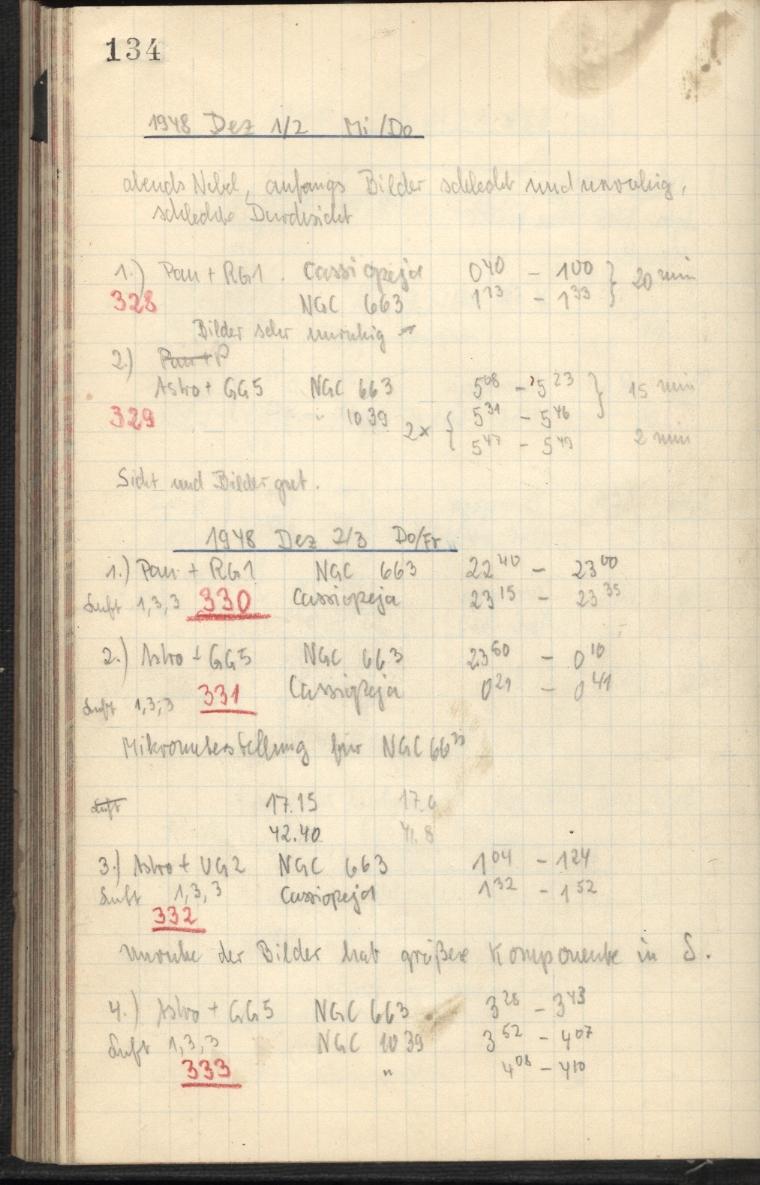 134
1948 Dez 1/2 Mi/Do
abends Nebel, anfangs Bilder schlecht und unruhig,
schlechte Durchsicht
1.) Pan + RG1. Cassiopeja 0⁴⁰ – 1⁰⁰ } 20 min
328 NGC 663 1¹³ – 1³³
Bilder sehr unruhig
2.) Pan + P
Astro + GG5 NGC 663 5⁰⁸ – 5²³ } 15 min
329 " 1039 2x { 5³¹ – 5⁴⁶
5⁴⁷ – 5⁴⁹ 2 min
Sicht und Bilder gut.
1948 Dez 2/3 Do/Fr.
1.) Pan + RG1 NGC 663 22⁴⁰ – 23⁰⁰
Luft 1,3,3 330 Cassiopeja 23¹⁵ – 23³⁵
2.) Astro + GG5 NGC 663 23⁵⁰ – 0¹⁰
Luft 1,3,3 331 Cassiopeja 0²¹ – 0⁴¹
Mikrometerstellung für NGC 663
Luft 17.15 17.9
42.40 41.8
3.) Astro + UG2 NGC 663 1⁰⁴ – 1²⁴
Luft 1,3,3 Cassiopeja 1³² – 1⁵²
332
Unruhe der Bilder hat größere Komponente in δ.
4.) Astro + GG5 NGC 663 3²⁸ – 3⁴³
Luft 1,3,3 NGC 1039 3⁵² – 4⁰⁷
333 " 4⁰⁸ – 4¹⁰